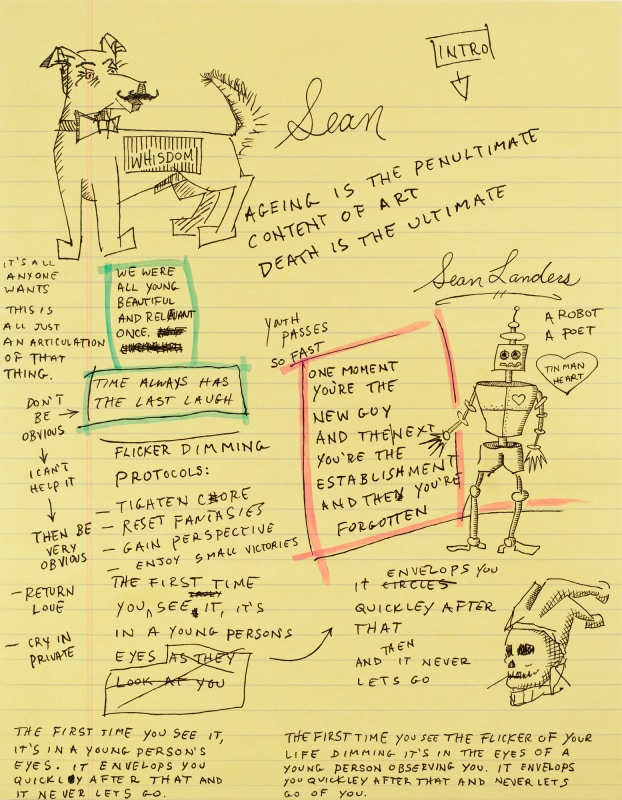 INTRO
Sean
WHISDOM
AGEING IS THE PENULTIMATE
CONTENT OF ART
DEATH IS THE ULTIMATE
IT'S ALL
ANYONE
WANTS
THIS IS
ALL JUST
AN ARTICULATION
OF THAT
THING.
WE WERE
ALL YOUNG
BEAUTIFUL
AND RELAVANT
ONCE.
TIME ALWAYS HAS
THE LAST LAUGH
DON'T
BE
OBVIOUS
I CAN'T
HELP IT
THEN BE
VERY
OBVIOUS
- RETURN
LOVE
- CRY IN
PRIVATE
FLICKER DIMMING
PROTOCOLS:
- TIGHTEN CORE
- RESET FANTASIES
- GAIN PERSPECTIVE
- ENJOY SMALL VICTORIES
THE FIRST TIME
YOU SEE IT, IT'S
IN A YOUNG PERSON'S
EYES AS THEY
LOOK AT YOU
Sean Landers
A ROBOT
A POET
TIN MAN
HEART
YOUTH
PASSES
SO FAST
ONE MOMENT
YOU'RE THE
NEW GUY
AND THE NEXT
YOU'RE THE
ESTABLISHMENT
AND THEN YOU'RE
FORGOTTEN
ENVELOPS YOU
IT CIRCLES
QUICKLEY AFTER
THAT
THEN
AND IT NEVER
LETS GO
THE FIRST TIME YOU SEE IT,
IT'S IN A YOUNG PERSON'S
EYES. IT ENVELOPS YOU
QUICKLY AFTER THAT AND
IT NEVER LETS GO.
THE FIRST TIME YOU SEE THE FLICKER OF YOUR
LIFE DIMMING IT'S IN THE EYES OF A
YOUNG PERSON OBSERVING YOU. IT ENVELOPS
YOU QUICKLEY AFTER THAT AND NEVER LETS
GO OF YOU.